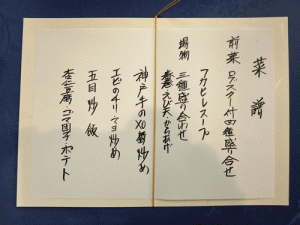 菜譜
前菜 ロブスター付四種盛り合せ
フカヒレスープ
揚物 三種盛り合わせ
春巻 えび天 からあげ
神戸牛のXO醤炒め
エビのチリ・マヨ炒め
五目炒飯
杏仁豆腐 ゴマ団子 ポテト